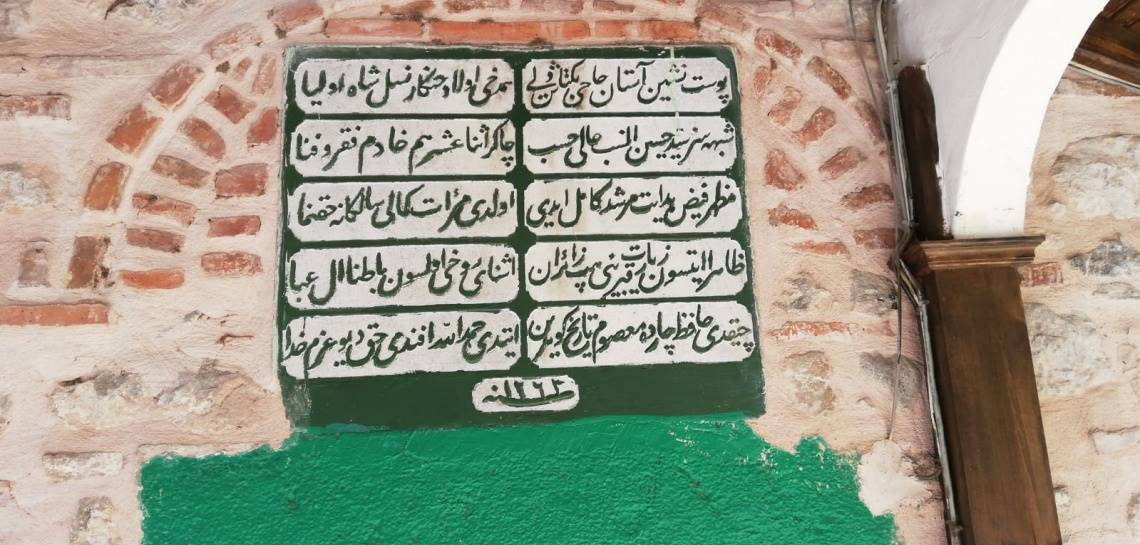 پوست نشین آستان حاجی بکتاش ولی
همدمی اولاد خنکار نسل شاه اولیا
سید حسن النسب عالی حسب
چاکر اثنا عشر هم خادم فقر و فنا
مظهر فیض هدایت مرشد کامل ایدی
اولدی مرآت کمالی سالکانه حقنما
ظاهرا ایتسون زیارت قبرینی هب زائران
اثنای روحی ایلسون باطندا ال عبا
چیقدی حافظ چارده معصوم تاریخ کویدن
ایتدی حمد الله افندی حق دیو عزم خدا
سنه ١٢٦٣